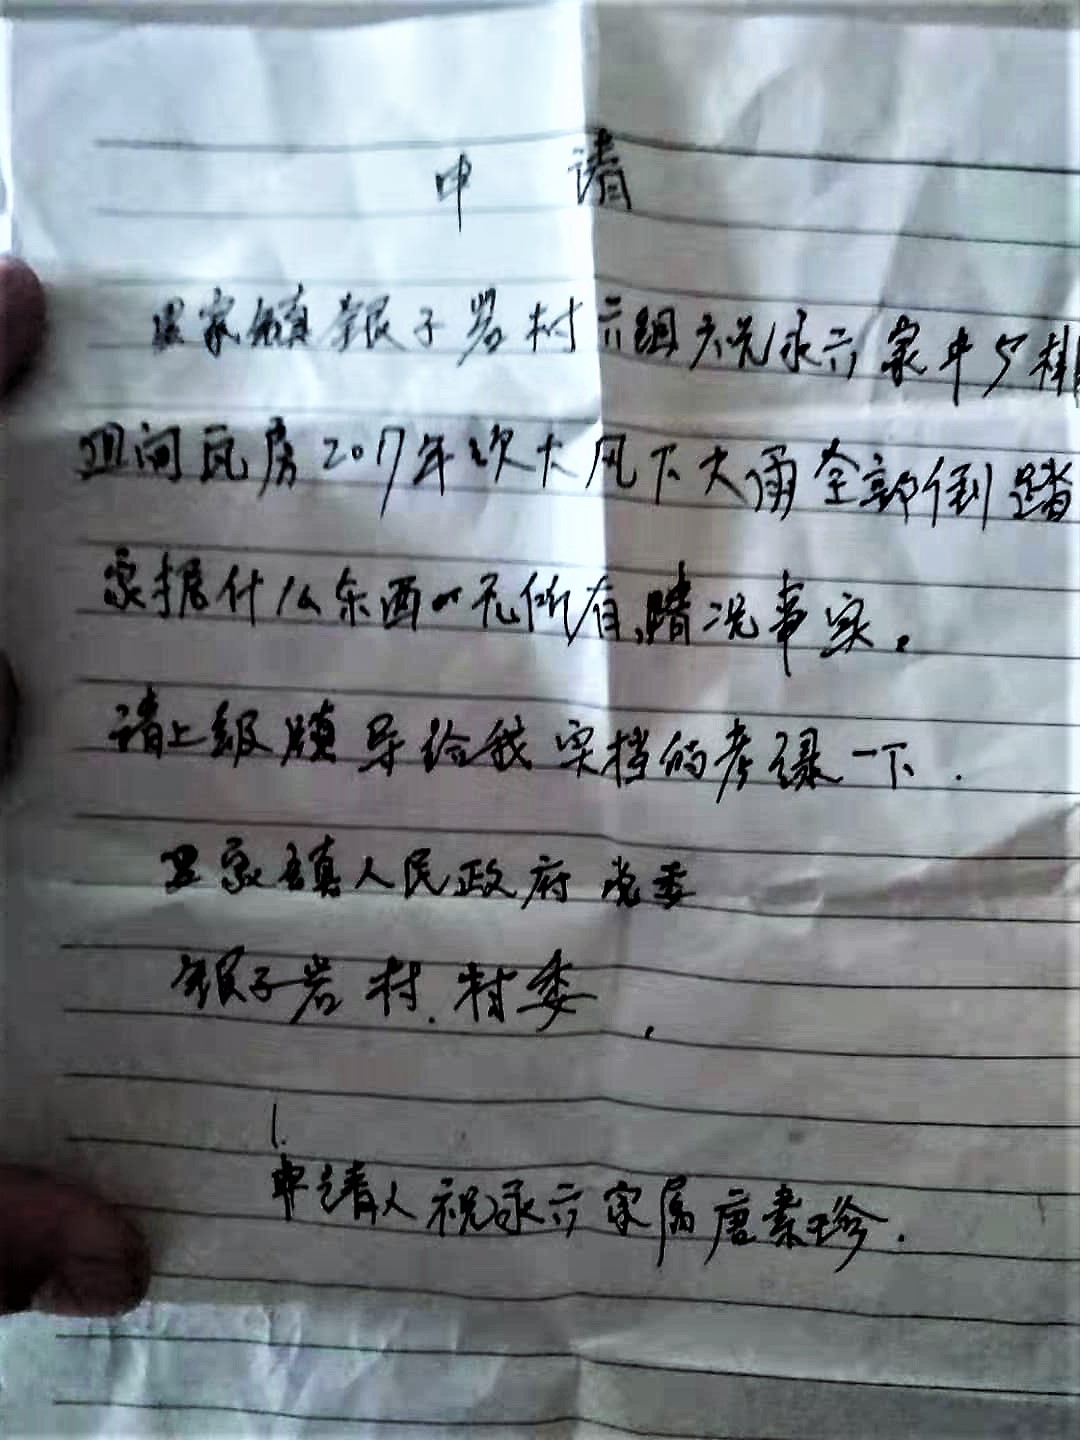 申 请
家镇银子岩村六组 祝永六家中5排
四间瓦房2017年次大风下大雨全部倒踏
家据什么东西一无所有,情况事实。
请上级领导给我实档的考绿一下.
家镇人民政府党委
银子岩村.村委,
申请人祝永六家属唐素珍.